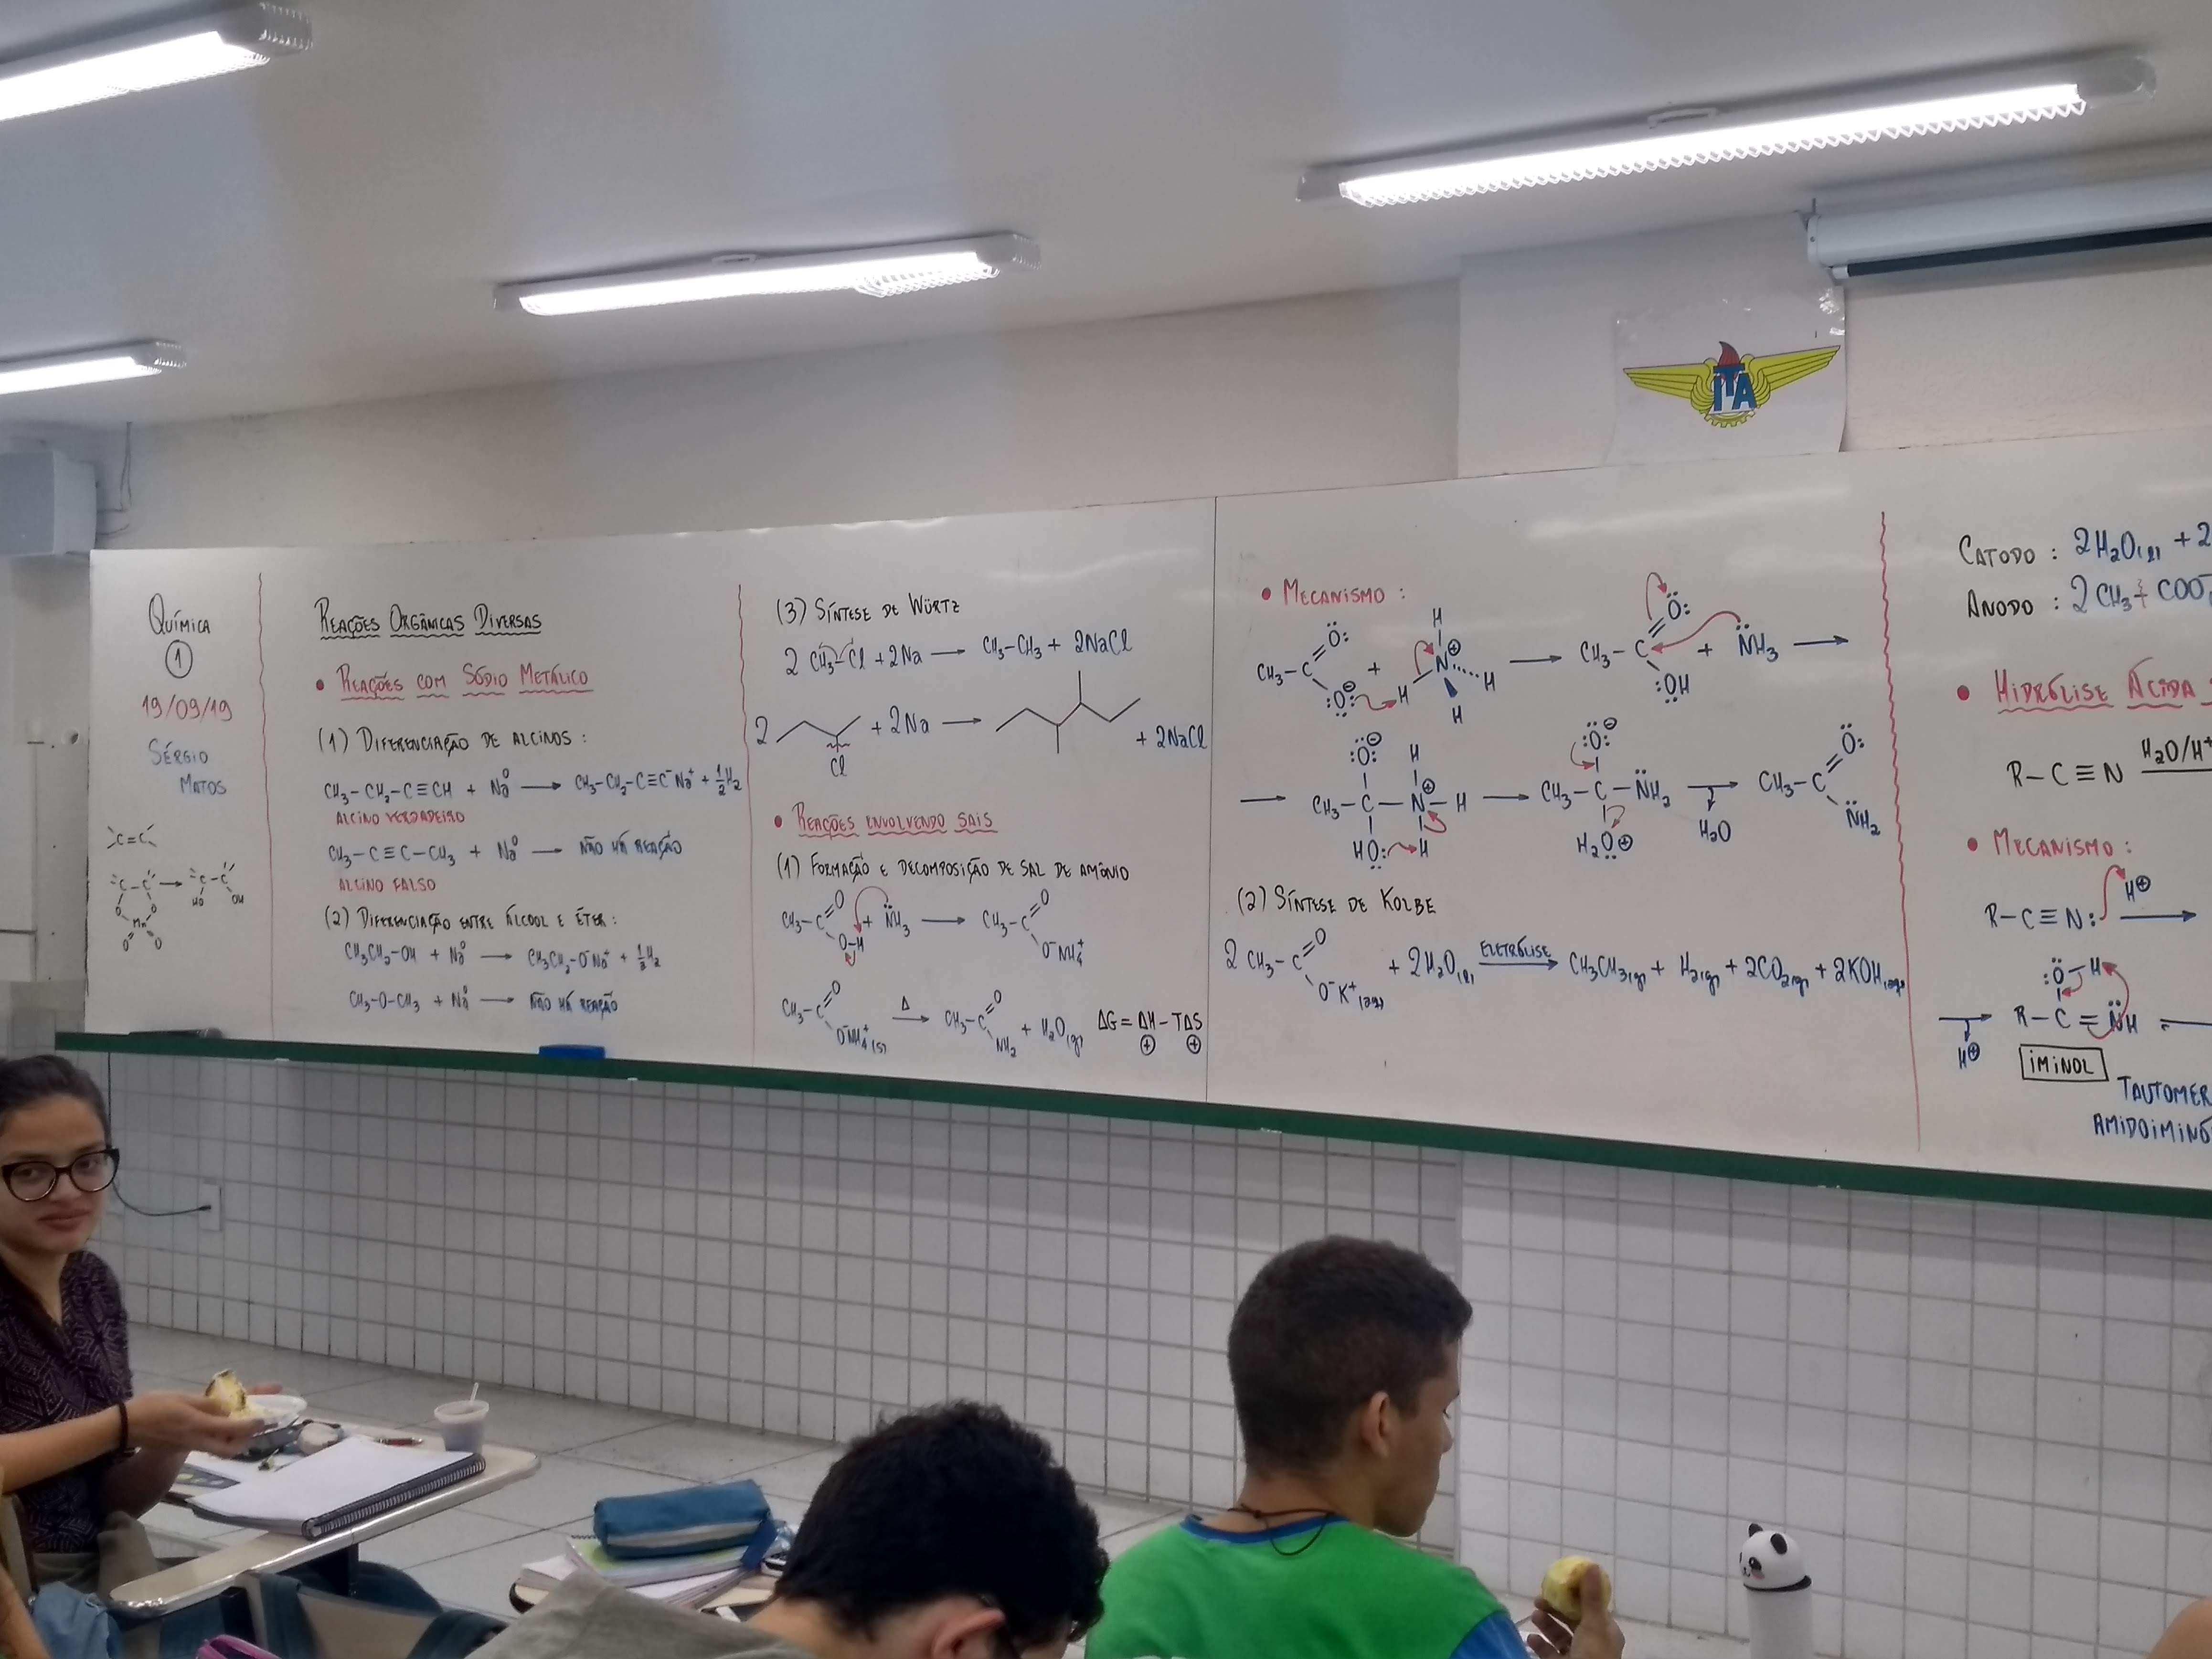 QUÍMICA
1
19/09/19
SÉRGIO
MATOS
C=C
C-C → C-C
HO OH
O O
Mn
O O
REAÇÕES ORGÂNICAS DIVERSAS
• REAÇÕES COM SÓDIO METÁLICO
(1) DIFERENCIAÇÃO DE ALCINOS :
CH₃-CH₂-C≡CH + Na⁰ → CH₃-CH₂-C≡C⁻Na⁺ + ½H₂
ALCINO VERDADEIRO
CH₃-C≡C-CH₃ + Na⁰ → NÃO HÁ REAÇÃO
ALCINO FALSO
(2) DIFERENCIAÇÃO ENTRE ÁLCOOL E ÉTER :
CH₃CH₂-OH + Na⁰ → CH₃CH₂-O⁻Na⁺ + ½H₂
CH₃-O-CH₃ + Na⁰ → NÃO HÁ REAÇÃO
(3) SÍNTESE DE WÜRTZ
2 CH₃-Cl + 2Na → CH₃-CH₃ + 2NaCl
2 Cl + 2Na → + 2NaCl
• REAÇÕES ENVOLVENDO SAIS
(1) FORMAÇÃO E DECOMPOSIÇÃO DE SAL DE AMÔNIO
CH₃-C=O O-H + N̈H₃ → CH₃-C=O O⁻NH₄⁺
CH₃-C=O O⁻NH₄⁺(s) Δ→ CH₃-C=O NH₂ + H₂O(g) ΔG = ΔH - TΔS
⊕ ⊕
• MECANISMO :
CH₃-C=O O⊖ + H N⊕ H H H → CH₃-C=O OH + N̈H₃ →
→ CH₃-C-N⊕-H O⊖ H HO H → CH₃-C-N̈H₂ O⊖ H₂O⊕ → H₂O CH₃-C=O N̈H₂
(2) SÍNTESE DE KOLBE
2 CH₃-C=O O⁻K⁺(aq) + 2H₂O(l) ELETRÓLISE→ CH₃CH₃(g) + H₂(g) + 2CO₂(g) + 2KOH(aq)
CATODO : 2H₂O(l) + 2
ANODO : 2CH₃-COO⁻
• HIDRÓLISE ÁCIDA
R-C≡N H₂O/H⁺
• MECANISMO :
R-C≡N: H⊕ →
→ H⊕ R-C=N̈H :Ö-H
IMINOL
TAUTOMER
AMIDOIMINÓ
ITA